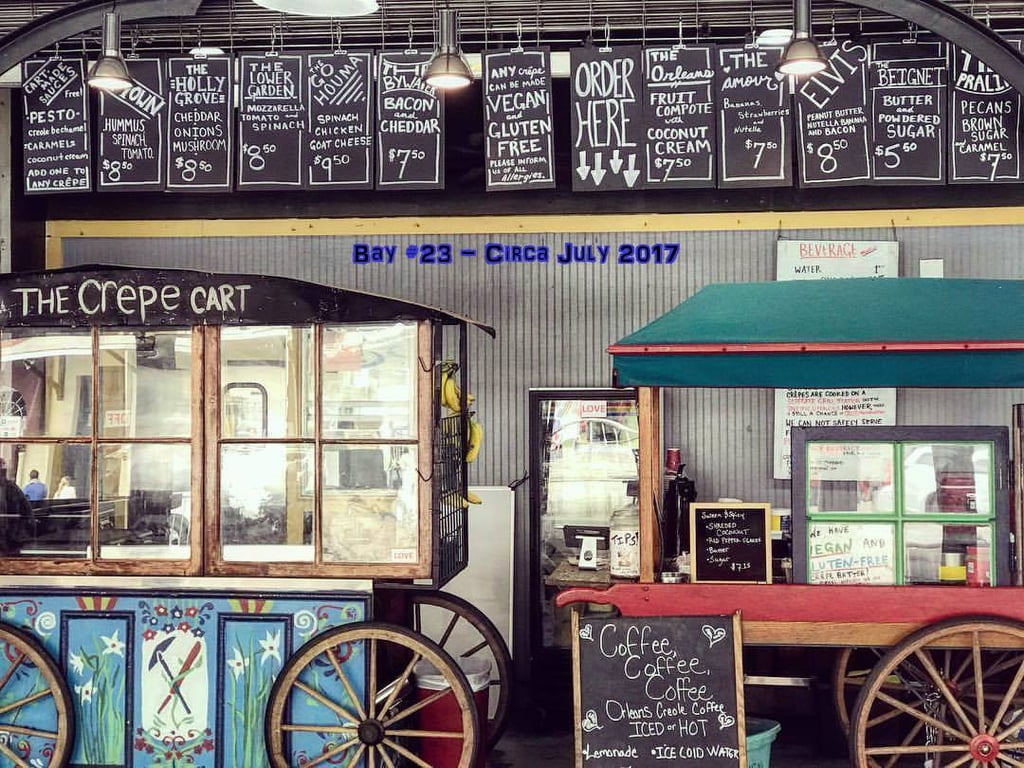 SAUCES
Free!
-PESTO-
creole bechamel
CARAMELS
coconut cream
ADD ONE TO
ANY CRÊPE
TOWN
HUMMUS
SPINACH,
TOMATO.
$8⁵⁰
THE
HOLLY
GROVE
CHEDDAR
ONIONS
MUSHROOM
$8⁵⁰
THE
LOWER
GARDEN
MOZZARELLA
TOMATO and
SPINACH
$8⁵⁰
THE
GO
HOUMA
SPINACH
CHICKEN
GOAT CHEESE
$9⁵⁰
THE
BYWATER
BACON
and
CHEDDAR
$7⁵⁰
ANY crêpe
CAN BE MADE
VEGAN
and
GLUTEN
FREE
PLEASE INFORM
US OF ALL
Allergies.
ORDER
HERE
THE
Orleans
FRUIT
COMPOTE
with
COCONUT
CREAM
$7⁵⁰
THE
amour
Bananas
Strawberries
Nutella
$7⁵⁰
ELVIS
PEANUT BUTTER
NUTELLA BANANA
AND BACON
$8⁵⁰
THE
BEIGNET
BUTTER
and
POWDERED
SUGAR
$5⁵⁰
PECANS
BROWN
SUGAR
CARAMEL
$7⁵⁰
Bay #23 - Circa July 2017
BEVERAGE
WATER
THE Crepe CART
LOVE
CRÊPES ARE COOKED ON A
HOWEVER,
STILL A CHANCE
WE CAN NOT SAFELY SERVE
FREE
LOVE
TIPS
Sweet & Spicy
•SHREDED
COCONUT
•RED PEPPER FLAKES
•Butter
•Sugar
$7.25
WE HAVE
VEGAN AND
GLUTEN-FREE
CRÊPE BATTER!
Coffee,
Coffee,
Coffee
Orleans Creole Coffee
ICED or HOT
•Lemonade •ICE COLD WATER